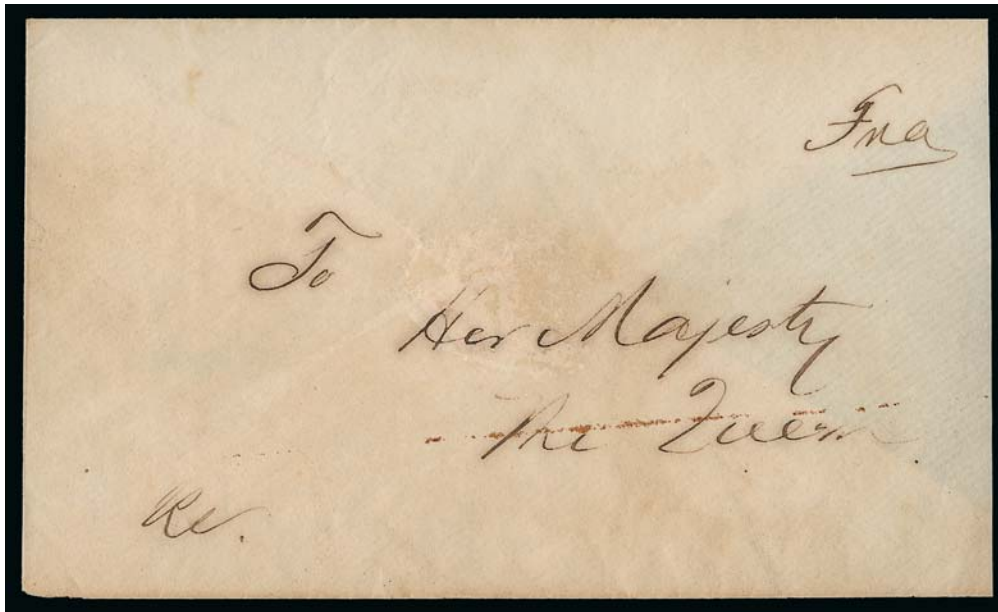 Fra
To
Her Majesty
The Queen
Re.